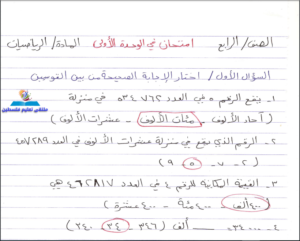 الصف/ الرابع    امتحان في الوحدة الأولى    المادة/ الرياضيات
ملتقى تعليم فلسطين
السؤال الأول / اختار الإجابة الصحيحة من بين القوسين
١- يقع الرقم ٥ في العدد ٥٣٤٧٦٢ في منزلة
( آحاد الألوف - مئات الألوف - عشرات الألوف )
٢- الرقم الذي يقع في منزلة عشرات الألوف في العدد
( ٢ - ٧ - ٥ - ٩ )
٣- القيمة المكانية للرقم ٤ في العدد ٤٦٢٨١٧ هي
( ٤٠٠ ألف - ٤٠٠ مئة - ٤٠٠ عشرة )
٤- ٣٤٠٠٠ = ...... ألف ( ٣٤٦ - ٣٤ - ٣٤٠ )